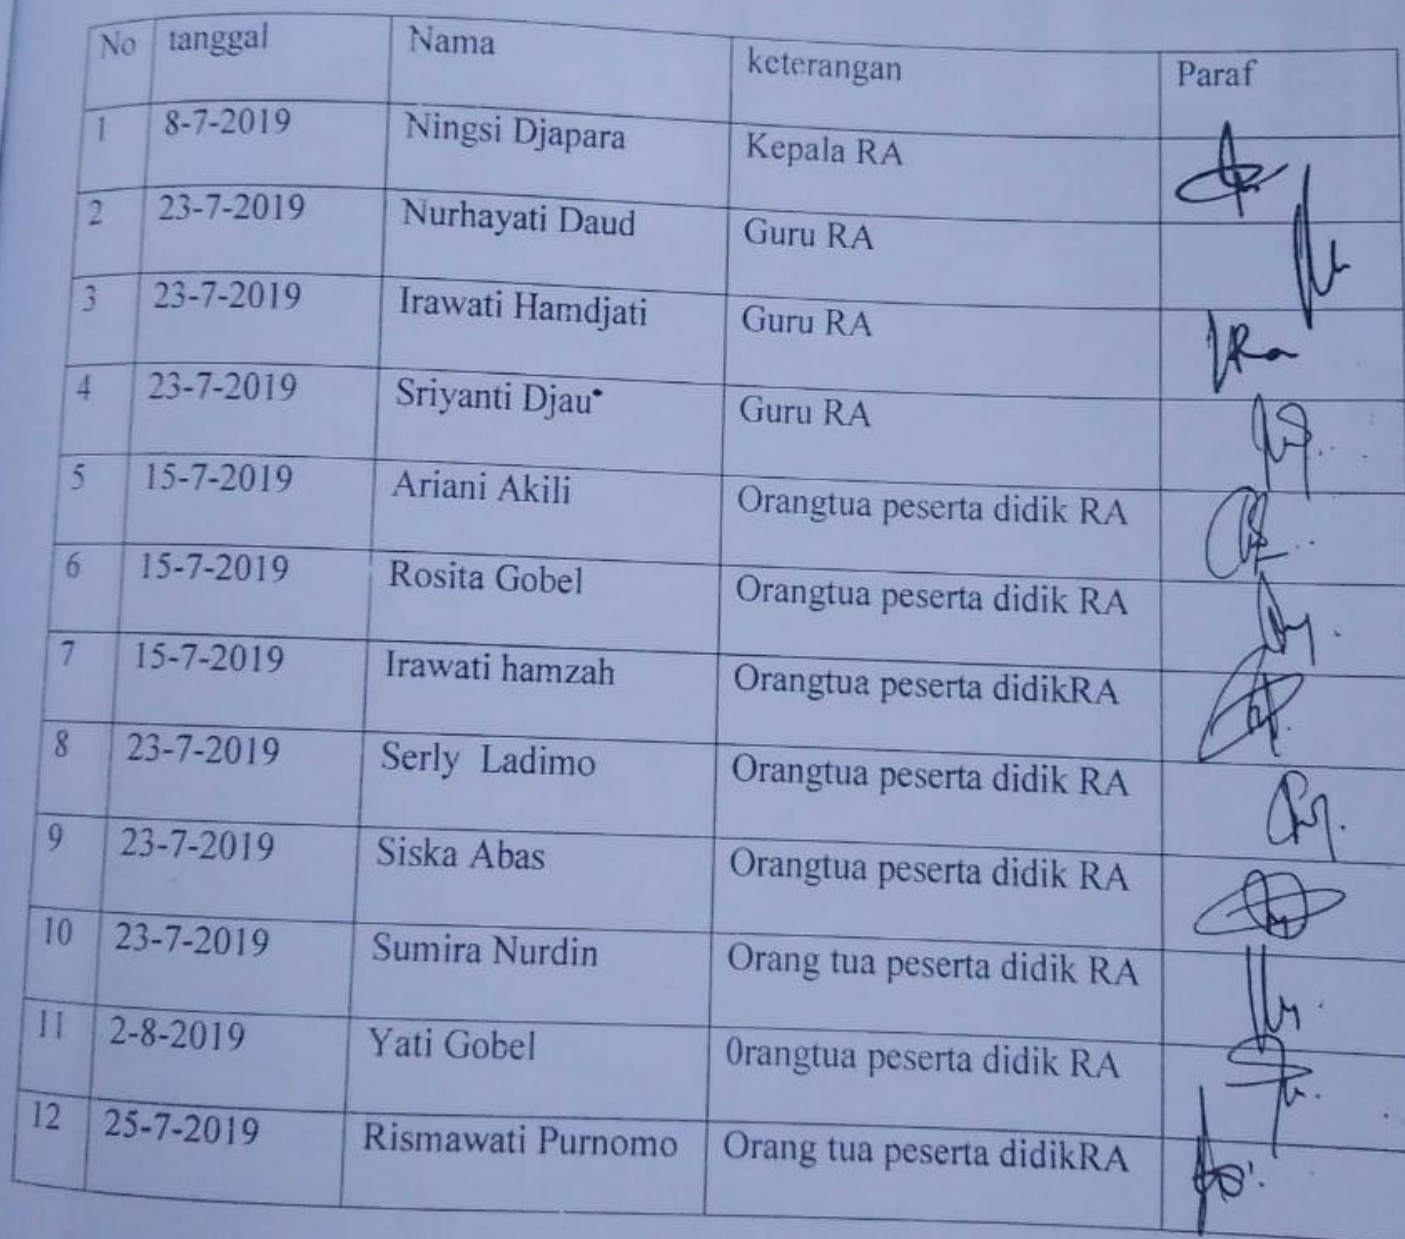 No tanggal Nama keterangan Paraf
1 8-7-2019 Ningsi Djapara Kepala RA
2 23-7-2019 Nurhayati Daud Guru RA
3 23-7-2019 Irawati Hamdjati Guru RA
4 23-7-2019 Sriyanti Djau Guru RA
5 15-7-2019 Ariani Akili Orangtua peserta didik RA
6 15-7-2019 Rosita Gobel Orangtua peserta didik RA
7 15-7-2019 Irawati hamzah Orangtua peserta didikRA
8 23-7-2019 Serly Ladimo Orangtua peserta didik RA
9 23-7-2019 Siska Abas Orangtua peserta didik RA
10 23-7-2019 Sumira Nurdin Orang tua peserta didik RA
11 2-8-2019 Yati Gobel 0rangtua peserta didik RA
12 25-7-2019 Rismawati Purnomo Orang tua peserta didikRA